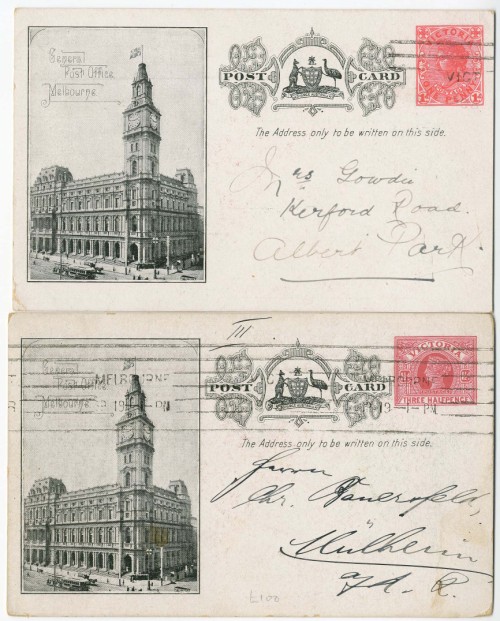 General
Post Office
Melbourne.
POST CARD
VICTORIA
VICT
The Address only to be written on this side.
Mrs Gowdie
Kerford Road.
Albert Park.
III
General
Post Office
Melbourne.
MELBOURNE
POST CARD
VICTORIA
THREE HALFPENCE
The Address only to be written on this side.
Herrn
Chr.
Mülheim
a. R.
E100